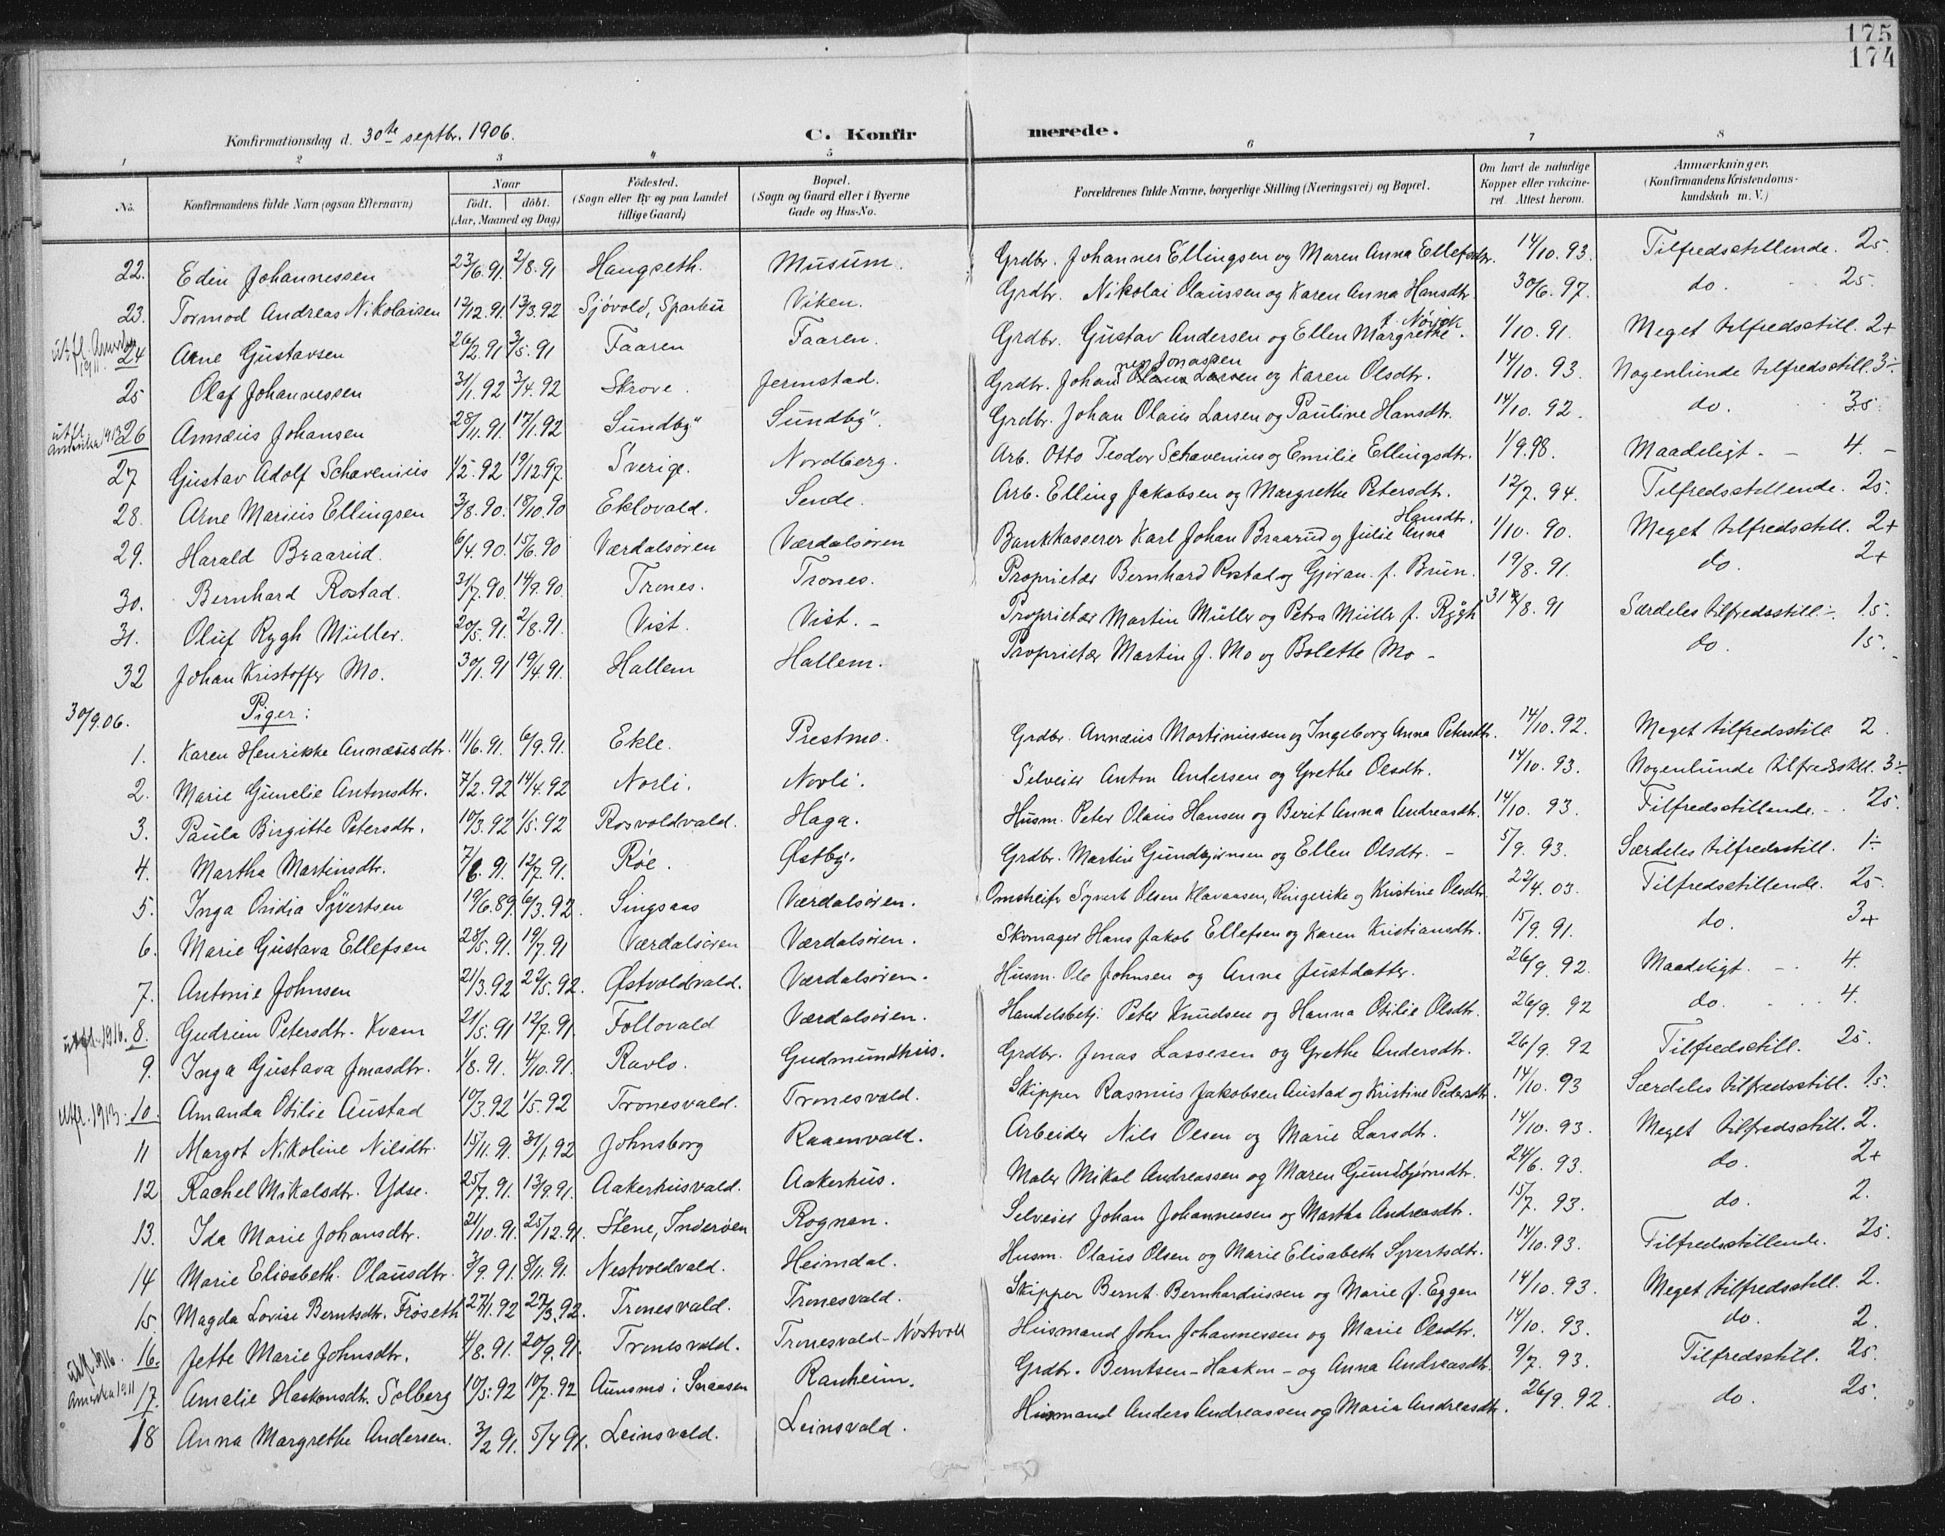 175
174
Konfirmationsdag d. 30te septbr. 1906. C. Konfir merede.
1 2 3 4 5 6 7 8
No. Konfirmandens fulde Navn (ogsaa Efternavn) Naar født. døbt. (Aar, Maaned og Dag) Fødested. (Sogn eller By og paa Landet tillige Gaard) Bopæl. (Sogn og Gaard eller i Byerne Gade og Hus-No. Forældrenes fulde Navne, borgerlige Stilling (Næringsvei) og Bopæl. Om havt de naturlige Kopper eller vakcineret. Attest herom. Anmærkninger. (Konfirmandens Kristendomskundskab m. V.)
22. Edin Johannessen 23/6.91. 2/8.91 Haugseth. Musum. Grdbr. Johannes Ellingsen og Maren Anna Ellefsdtr. 14/10.93. Tilfredsstillende. 25.
23. Tormod Andreas Nikolaisen 12/12.91. 13/3.92 Sjövold, Sparbu Viken. Grdbr. Nikolai Olaussen og Karen Anna Hansdtr. 30/6.97. do. 25.
utfl. 1911. 24 Arne Gustavsen 26/2.91 3/5.91 Faaren Faaren. Grdbr. Gustav Andersen og Ellen Margrethe f. Növik. 1/10.91. Meget tilfredsstill. 2+
25 Olaf Johannessen 31/1.92 3/4.92 Skrove. Jermstad. Grdbr. Johan Olaus Larsen og Karen Olsdtr. 14/10.93. Nogenlunde tilfredsstill. 3÷
utfl. Amerika 1913 26 Annæus Johansen 28/11.91. 17/1.92 Sundby" Sundby". Grdbr. Johan Olaus Larsen og Pauline Hansdtr. 14/10.92. do. 35
27 Gustav Adolf Schavenius 1/5.92 19/12.97. Sverige. Nordberg. Arb. Otto Teodor Schavenius og Emilie Ellingsdtr. 1/9.98. Maadeligt. - - 4. -
28. Arne Marius Ellingsen 3/8.90. 18/10.90 Eklovald. Sende. Arb. Elling Jakobsen og Margrethe Petersdtr. 12/7.94. Tilfredsstillende. 25.
29. Harald Braarud. 6/4.90. 15/6.90 Værdalsøren Værdalsøren Bankkasserer Karl Johan Braarud og Julie Anna Hansdtr. 1/10.90. Meget tilfredsstill. 2+
30. Bernhard Rostad. 31/7.90. 14/9.90. Trones. Trones. Proprietær Bernhard Rostad og Gjøran. f. Brun. 19/8.91. do. 2+
31. Oluf Rygh Müller. 20/5.91. 2/8.91. Vist. Vist. - Proprietær Martin Müller og Petra Müller f. Rygh 31/8.91 Særdeles tilfredsstill. - 15.
32 Johan Kristoffer Mo. 30/1.91 19/4.91. Hallem Hallem. Proprietær Martin J. Mo og Bolette Mo - do. 15. -
30/9.06. Piger:
1. Karen Henrikke Annæusdtr. 11/6.91. 6/9.91. Ekle. Prestmo. Grdbr. Annæus Martinussen og Ingeborg Anna Petersdtr. 14/10.92. Meget tilfredsstill 2.
2. Marie Gunelie Antonsdtr. 7/2.92 14/4.92 Norli. Novli. Selveier Anton Andersen og Grethe Olsdtr. 14/10.93. Nogenlunde tilfredsstill. 3÷
3. Paula Birgitte Petersdtr. 10/3.92 1/5.92 Rosvoldvald. Haga. Husm. Peter Olaus Hansen og Berit Anna Andreasdtr. 14/10.93. Tilfredsstillende. - 25.
4. Martha Martinsdtr. 7/6.91. 12/7.91. Røe. Østby. Grdbr. Martin Gundbjørnsen og Ellen Olsdtr. - 5/9.93. Særdeles tilfredsstill. 1÷
5. Inga Ovidia Syvertsen 19/6.89. 6/3.92. Singsaas Værdalsøren. Omstreifr Syvert Olsen Klavaasen, Ringerike og Kristine Olsdtr. 22/4.03. Tilfredsstillende. 25.
6. Marie Gustava Ellefsen 28/5.91. 19/7.91 Værdalsøren Værdalsøren. Skomager Hans Jakob Ellefsen og Karen Kristiansdtr. 15/9.91. do. 3+
7. Antonie Johnsen 21/3.92 22/5.92. Østvoldvald. Værdalsøren. Husm. Ole Johnsen og Anna Justdatter. 26/9.92. Maadeligt. - - 4.
utfl. 1916. 8. Gudrun Petersdtr. Kvam 21/5.91 12/7.91. Follovald Værdalsøren. Handelsbetj. Peter Knudsen og Hanna Otilie Olsdtr. 26/9.92 do. 4.
9. Inga Gustava Jonasdtr. 1/8.91. 4/10.91. Ravlo. Gudmundhus. Grdbr. Jonas Lassesen og Grethe Andersdtr. 26/9.92 Tilfredsstill. 25.
utfl. 1913. 10. Amanda Otilie Austad 10/3.92 1/5.92 Tronesvald. Tronesvald. Skipper Rasmus Jakobsen Austad og Kristine Pedersdtr. 14/10.93 Særdeles tilfredsstill. 15.
11 Margot Nikoline Nilsdtr. 15/11.91. 31/1.92 Johnsborg Raaenvald. Arbeider Nils Olsen og Marie Larsdtr. 14/10.93. Meget tilfredsstill. 2.
12 Rachel Mikalsdtr. Ydse. 25/7.91. 13/9.91. Aakerhusvald. Aakerhus. Maler Mikal Andreassen og Maren Gundbjørnsdtr. 24/6.93. do. 2+
13. Ida Marie Johansdtr. 21/10.91. 25/12.91. Stene, Inderøen Rognan. Selveier Johan Johannessen og Martha Andreasdtr. 15/7.93. do. 2.
14 Marie Elisabeth Olausdtr. 3/9.91. 8/11.91. Nestvoldvald. Heimdal. Husm. Olaus Olsen og Marie Elisabeth Syvertsdtr. 14/10.93. Tilfredsstillende. 25.
15. Magda Lovise Berntsdtr. Frøseth 27/1.92 27/3.92. Tronesvald. Tronesvald. Skipper Bernt Bernhardussen og Marie f. Eggen 14/10.93. Meget tilfredsstill. 2.
utfl. 1916. 16. Jette Marie Johnsdtr. 4/8.91. 20/9.91. Tronesvald. Tronesvald-Nestvold Husmand John Johannessen og Marie Olsdtr. 14/10.93. do. 2.
Amerika 1911 17. Amalie Haakonsdtr. Solberg 10/5.92 10/7.92 Aunsmo i Snaasen Ranheim. Grdbr. Berntsen-Haakon- og Anna Andreasdtr. 9/7.93. Tilfredsstill. 25.
18 Anna Margrethe Andersen. 3/2.91. 5/4.91. Leinsvald. Leinsvald. Husmand Anders Andreassen og Maria Andreasdtr. 26/9.92. do. 25.